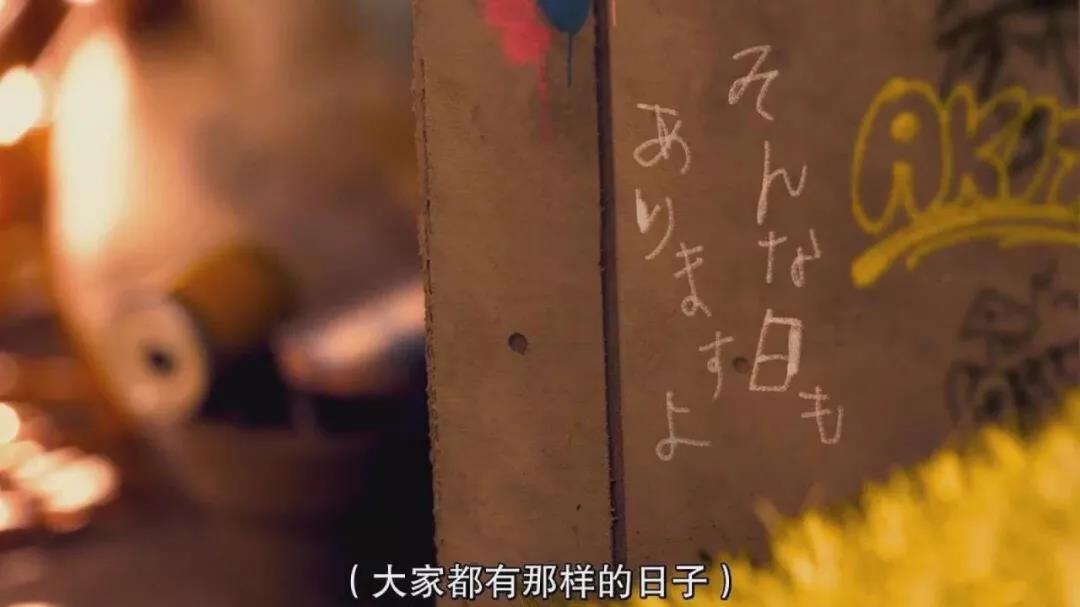 そんな日も
ありますよ
（大家都有那样的日子）